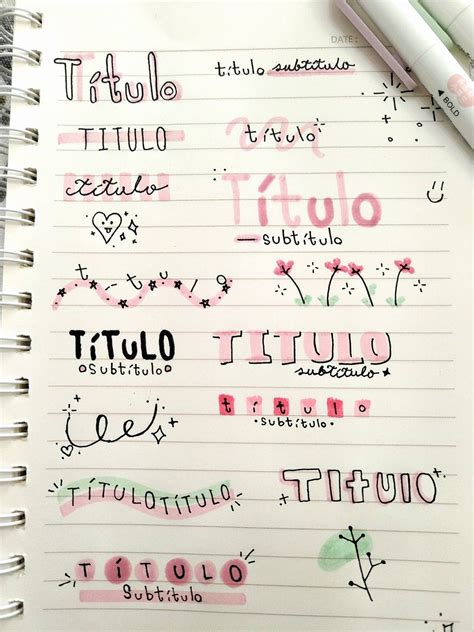 DATE:
BOLD
Título
título subtítulo
TITULO
título
título
Título
Subtítulo
título
TíTULO
Subtítulo
TITULO
subtítulo
título
Subtítulo
TÍTULOTÍTULO
TItulo
TÍTULO
Subtítulo